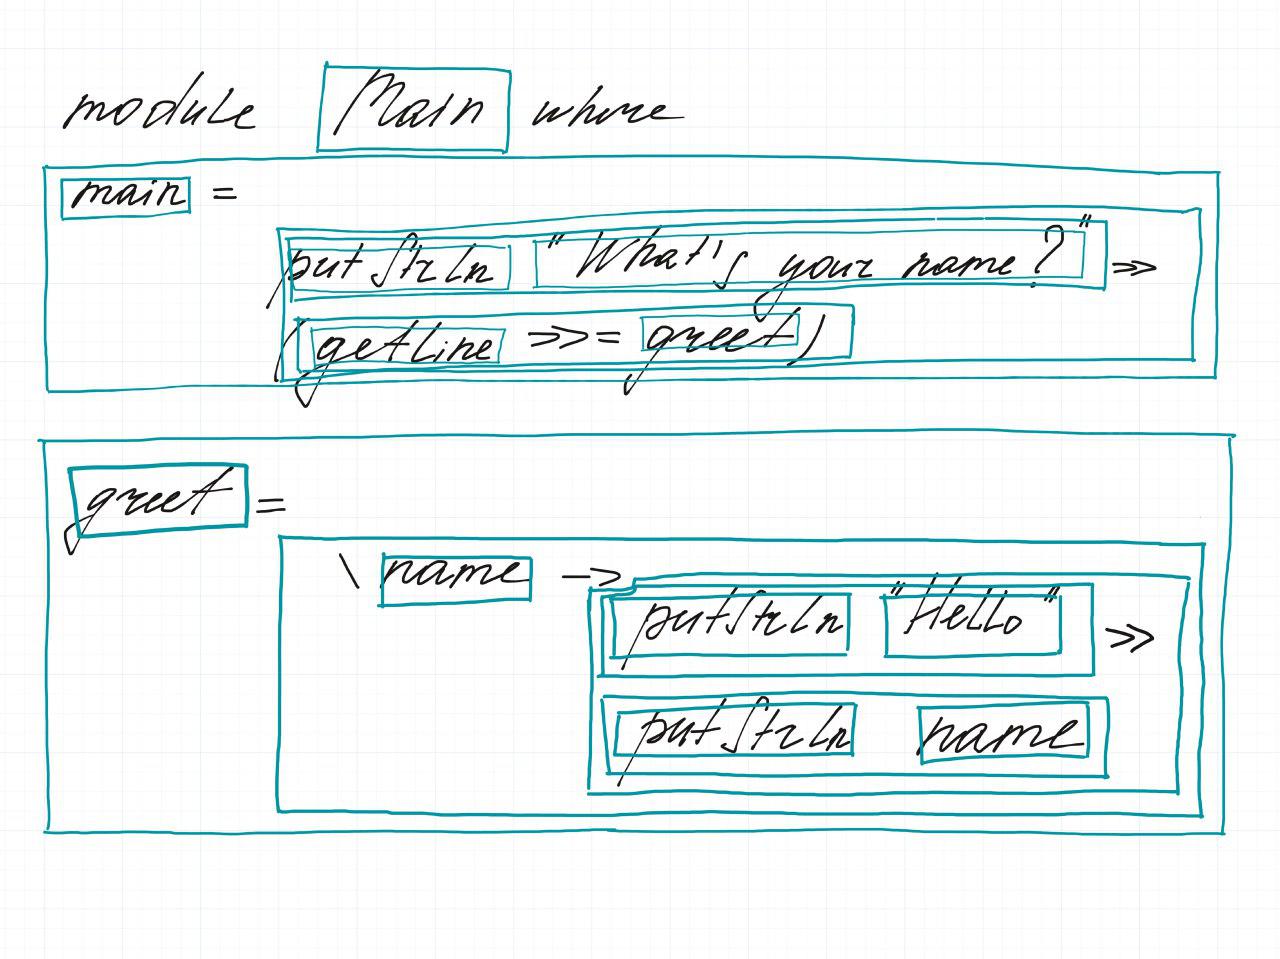 module Main where
main =
putStrLn "What's your name?" >>
(getLine >>= greet)
greet =
\ name ->
putStrLn "Hello" >>
putStrLn name